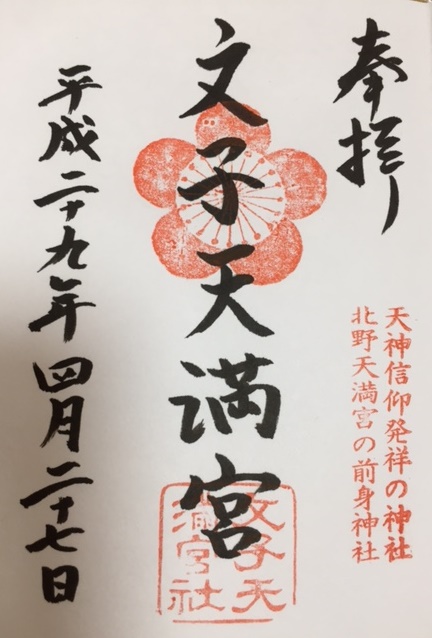 奉拝
天神信仰発祥の神社
北野天満宮の前身神社
文子天満宮
文子天満宮社
平成二十九年四月二十七日